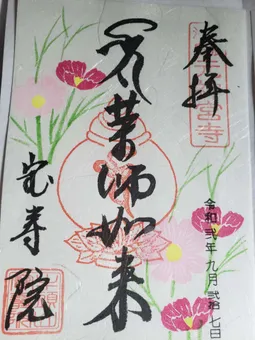 奉拝
薬師如来
令和弐年九月弐拾七日
宝寿院